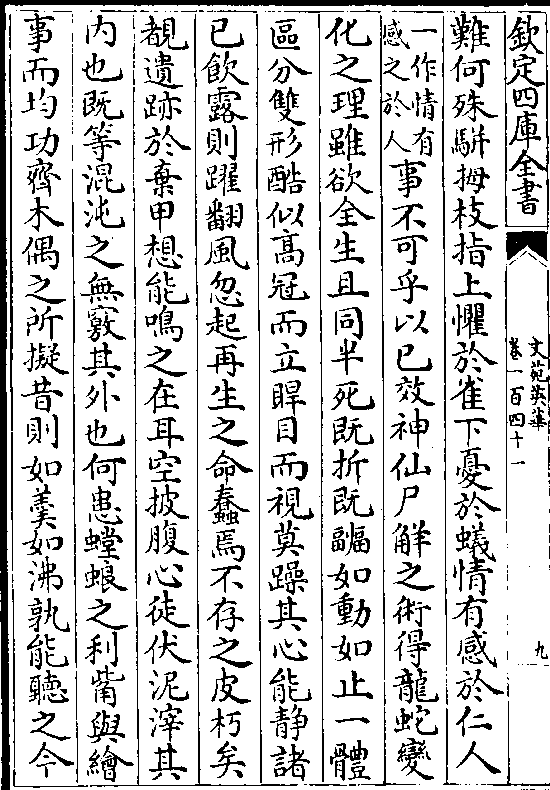 欽定四庫全書
文苑英華
卷一百四十一
九
難何殊駢拇枝指上懼於雀下憂於蟻情有感於仁人
一作情有
感之於人
事不可乎以已效神仙尸解之術得龍蛇變
化之理雖欲全生且同半死既折既𠠦如動如止一體
區分雙形酷似高冠而立睅目而視莫躁其心能静諸
已飲露則躍翻風忽起再生之命蠢焉不存之皮朽矣
覩遺跡於棄甲想能鳴之在耳空披腹心徒伏泥滓其
内也既等混沌之無竅其外也何患螳蜋之利觜與繪
事而均功齊木偶之所擬昔則如羹如沸孰能聽之今